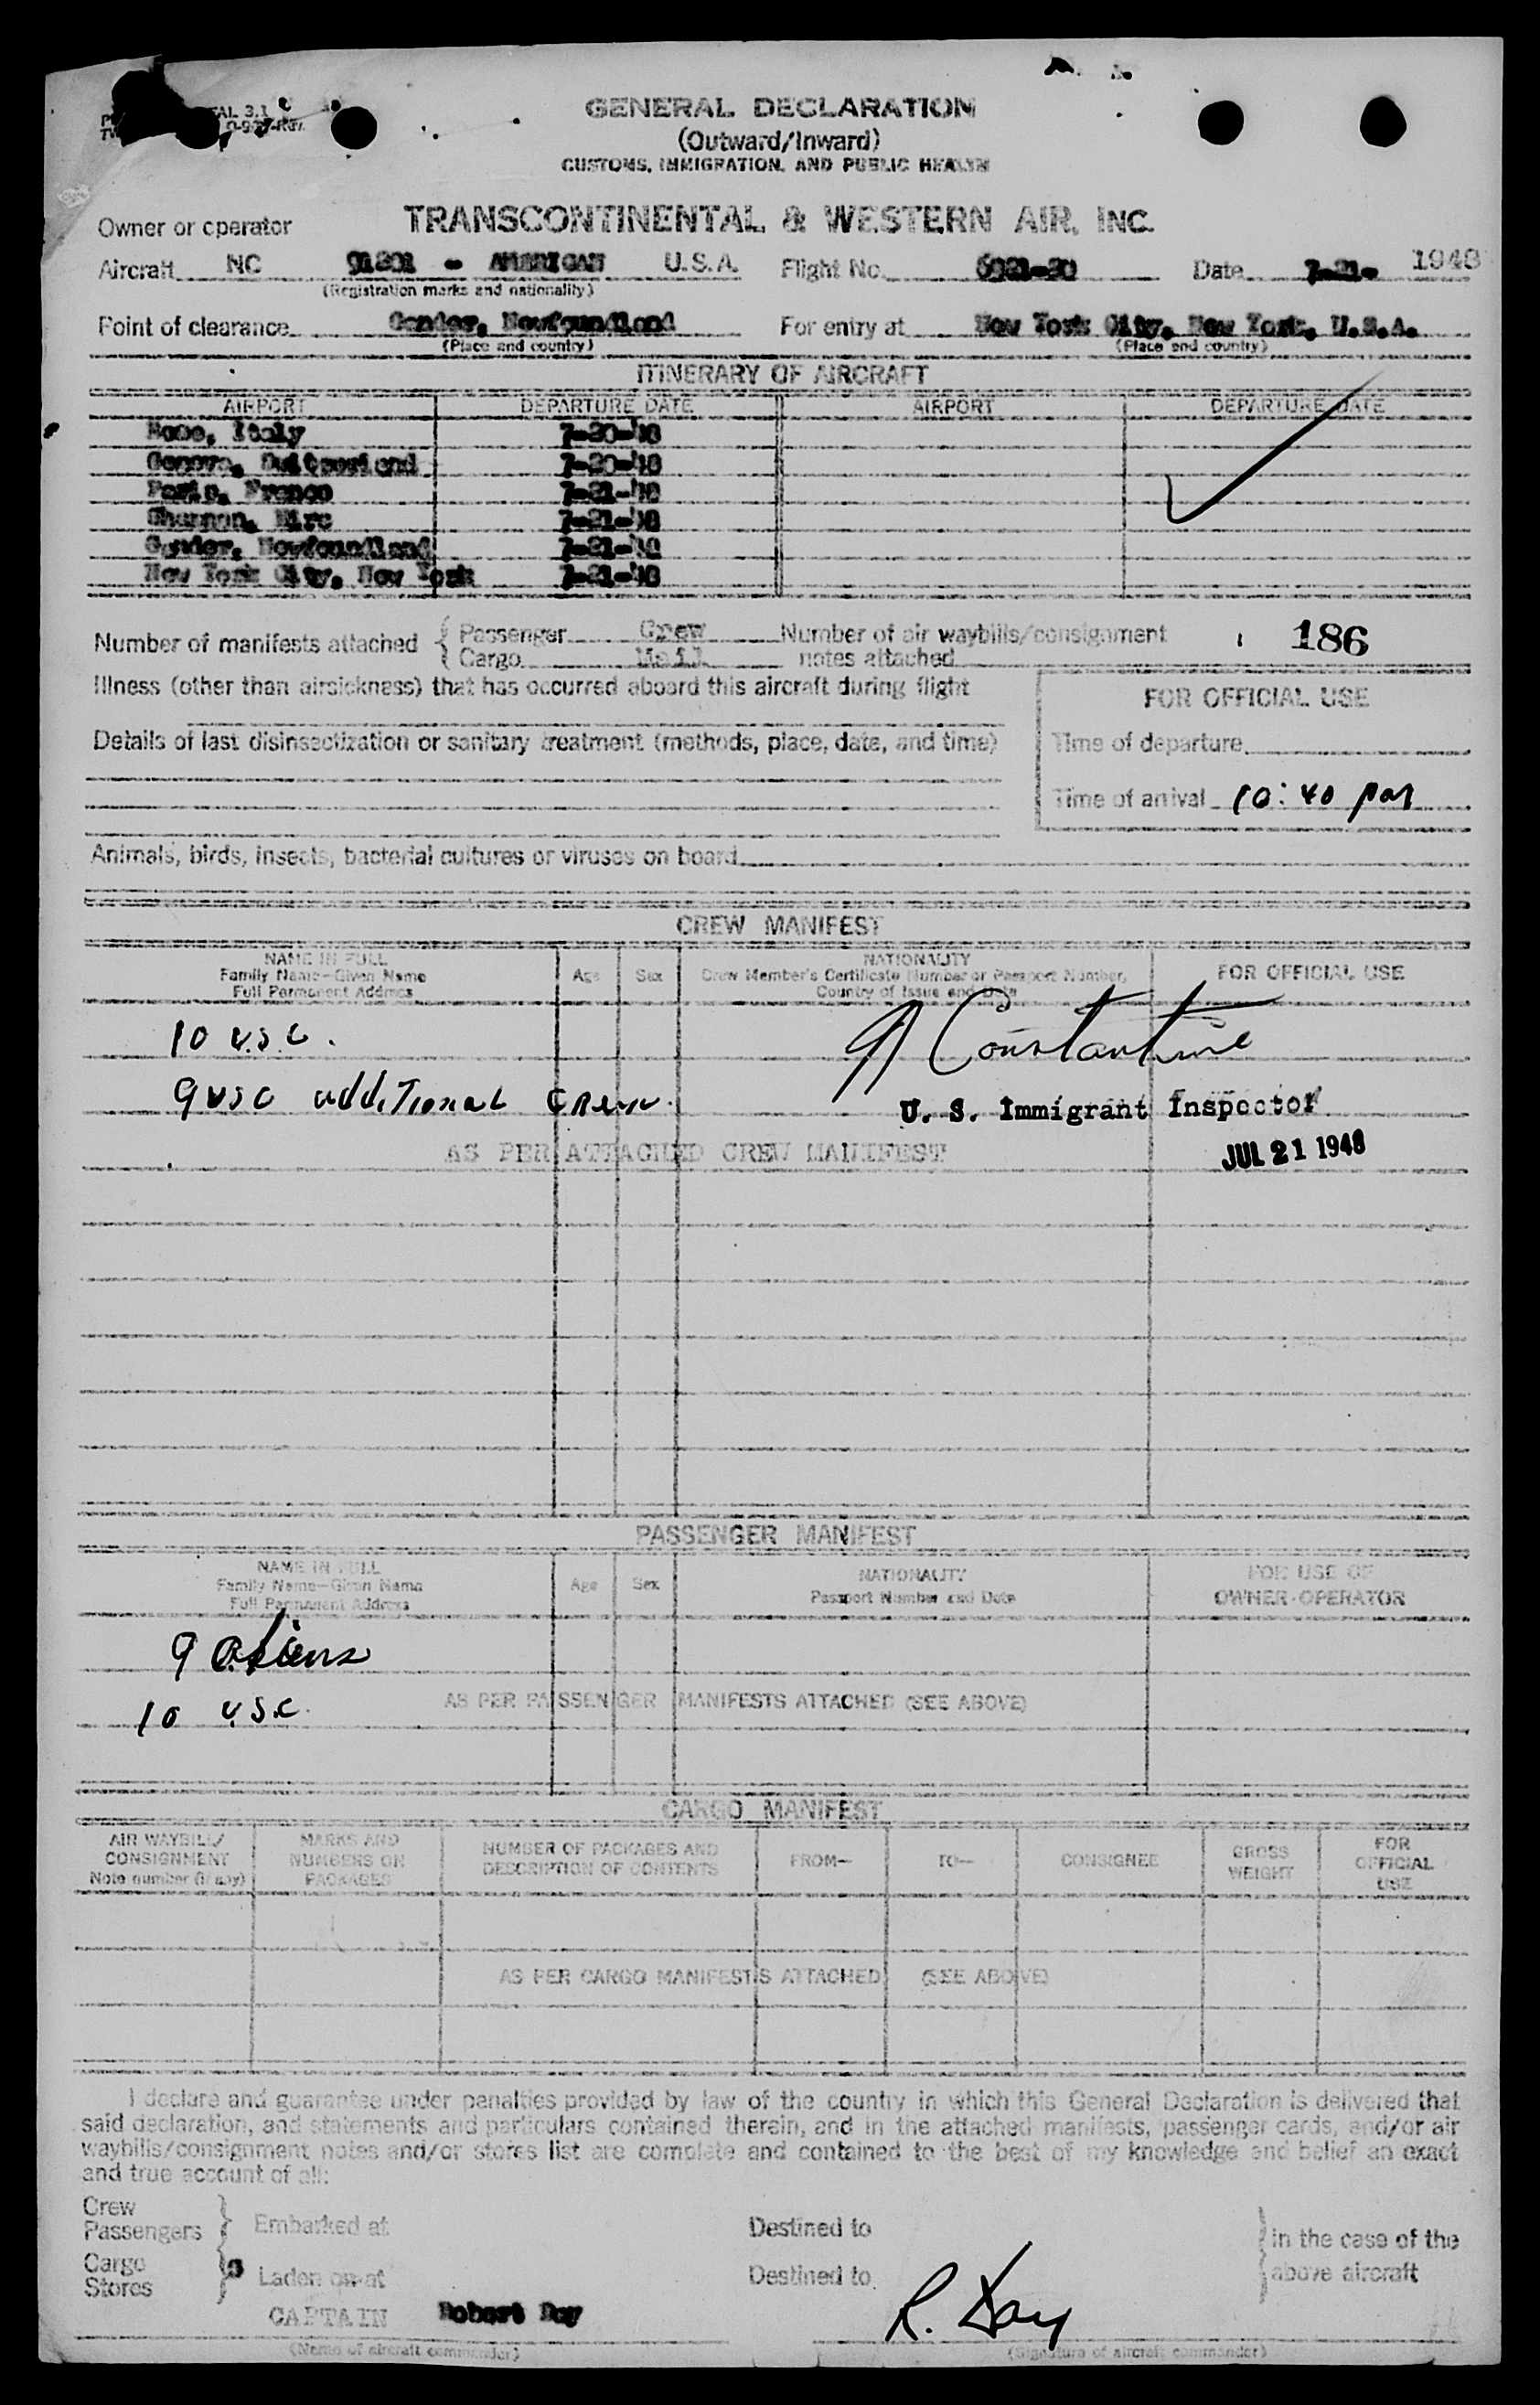 GENERAL DECLARATION
(Outward/Inward)
CUSTOMS, IMMIGRATION, AND PUBLIC HEALTH
Owner or operator TRANSCONTINENTAL & WESTERN AIR, INC.
Aircraft NC 91201 - AMERICAN U.S.A. Flight No. Date 7-21- 1948
(Registration marks and nationality)
Point of clearance Gander, Newfoundland For entry at New York City, New York, U.S.A.
(Place and country) (Place and country)
ITINERARY OF AIRCRAFT
AIRPORT DEPARTURE DATE AIRPORT DEPARTURE DATE
Rome, Italy 7-20-48
Geneva, Switzerland 7-20-48
Paris, France 7-21-48
Shannon, Eire 7-21-48
Gander, Newfoundland 7-21-48
New York City, New York 7-21-48
Number of manifests attached { Passenger Crew Number of air waybills/consignment 186
Cargo Mail notes attached
Illness (other than airsickness) that has occurred aboard this aircraft during flight
FOR OFFICIAL USE
Details of last disinsectization or sanitary treatment (methods, place, date, and time)
Time of departure
Time of arrival 10:40 pm
Animals, birds, insects, bacterial cultures or viruses on board
CREW MANIFEST
NAME IN FULL
Family Name—Given Name
Full Permanent Address
Age Sex
NATIONALITY
Crew Member's Certificate Number or Passport Number,
Country of Issue and Date
FOR OFFICIAL USE
10 U.S.C.
Constantine
9 USC additional Crew.
U. S. Immigrant Inspector
AS PER ATTACHED CREW MANIFEST
JUL 21 1948
PASSENGER MANIFEST
NAME IN FULL
Family Name—Given Name
Full Permanent Address
Age Sex
NATIONALITY
Passport Number and Date
FOR USE OF
OWNER-OPERATOR
9 aliens
10 U.S.C.
AS PER PASSENGER MANIFESTS ATTACHED (SEE ABOVE)
CARGO MANIFEST
AIR WAYBILL/
CONSIGNMENT
Note number (if any)
MARKS AND
NUMBERS ON
PACKAGES
NUMBER OF PACKAGES AND
DESCRIPTION OF CONTENTS
FROM—
TO—
CONSIGNEE
GROSS
WEIGHT
FOR
OFFICIAL
USE
AS PER CARGO MANIFESTS ATTACHED (SEE ABOVE)
I declare and guarantee under penalties provided by law of the country in which this General Declaration is delivered that
said declaration, and statements and particulars contained therein, and in the attached manifests, passenger cards, and/or air
waybills/consignment notes and/or stores list are complete and contained to the best of my knowledge and belief an exact
and true account of all:
Crew
Passengers } Embarked at Destined to } in the case of the
Cargo
Stores } Laden on at Destined to above aircraft
CAPTAIN Robert Day R. Day
(Name of aircraft commander) (Signature of aircraft commander)